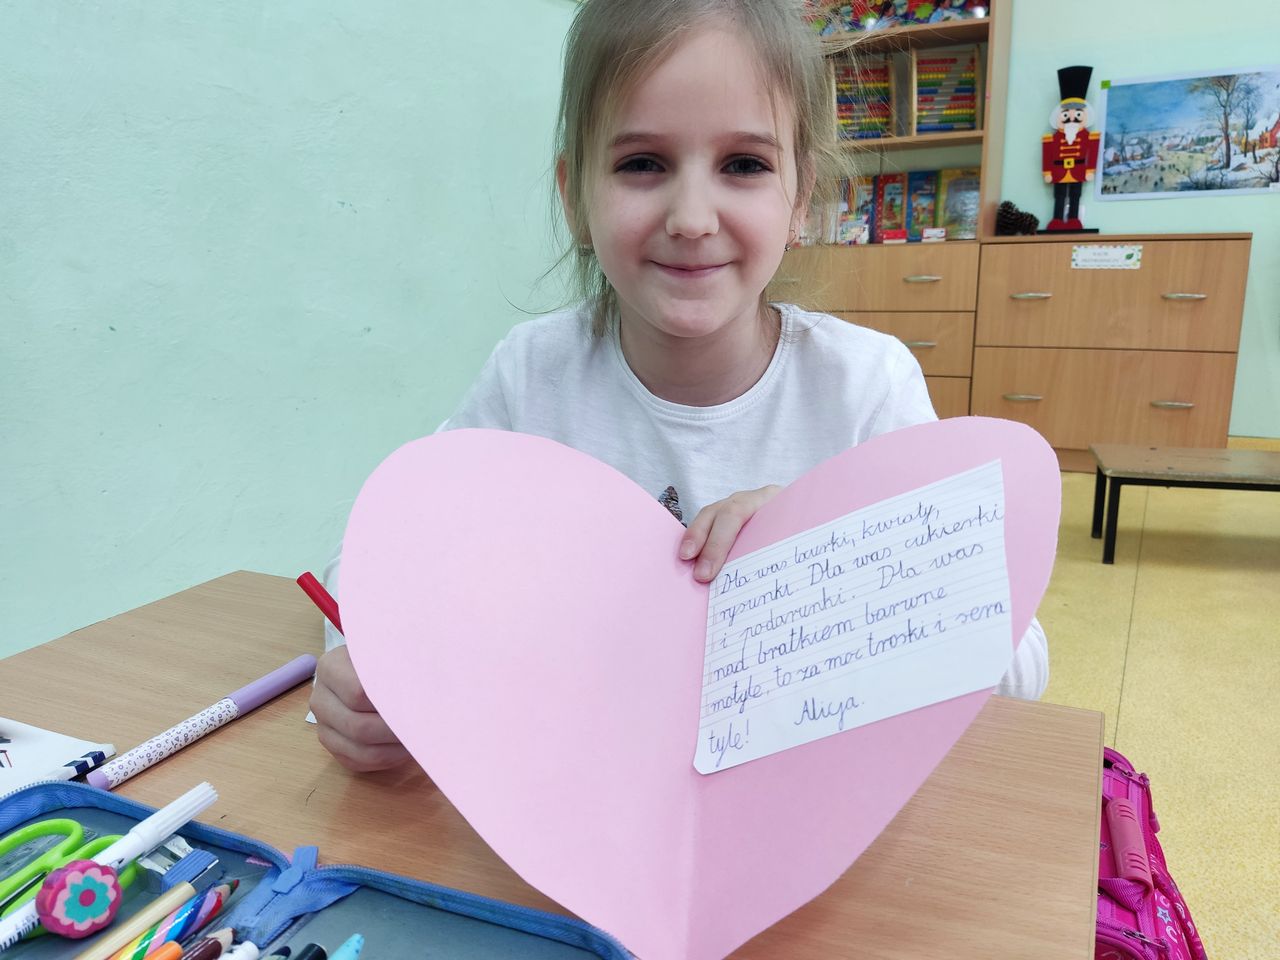 Dla was laurki, kwiaty,
rysunki. Dla was cukierki
i podarunki. Dla was
nad bratkiem barwne
motyle, to za moc troski i serca
tyle! Alicja.